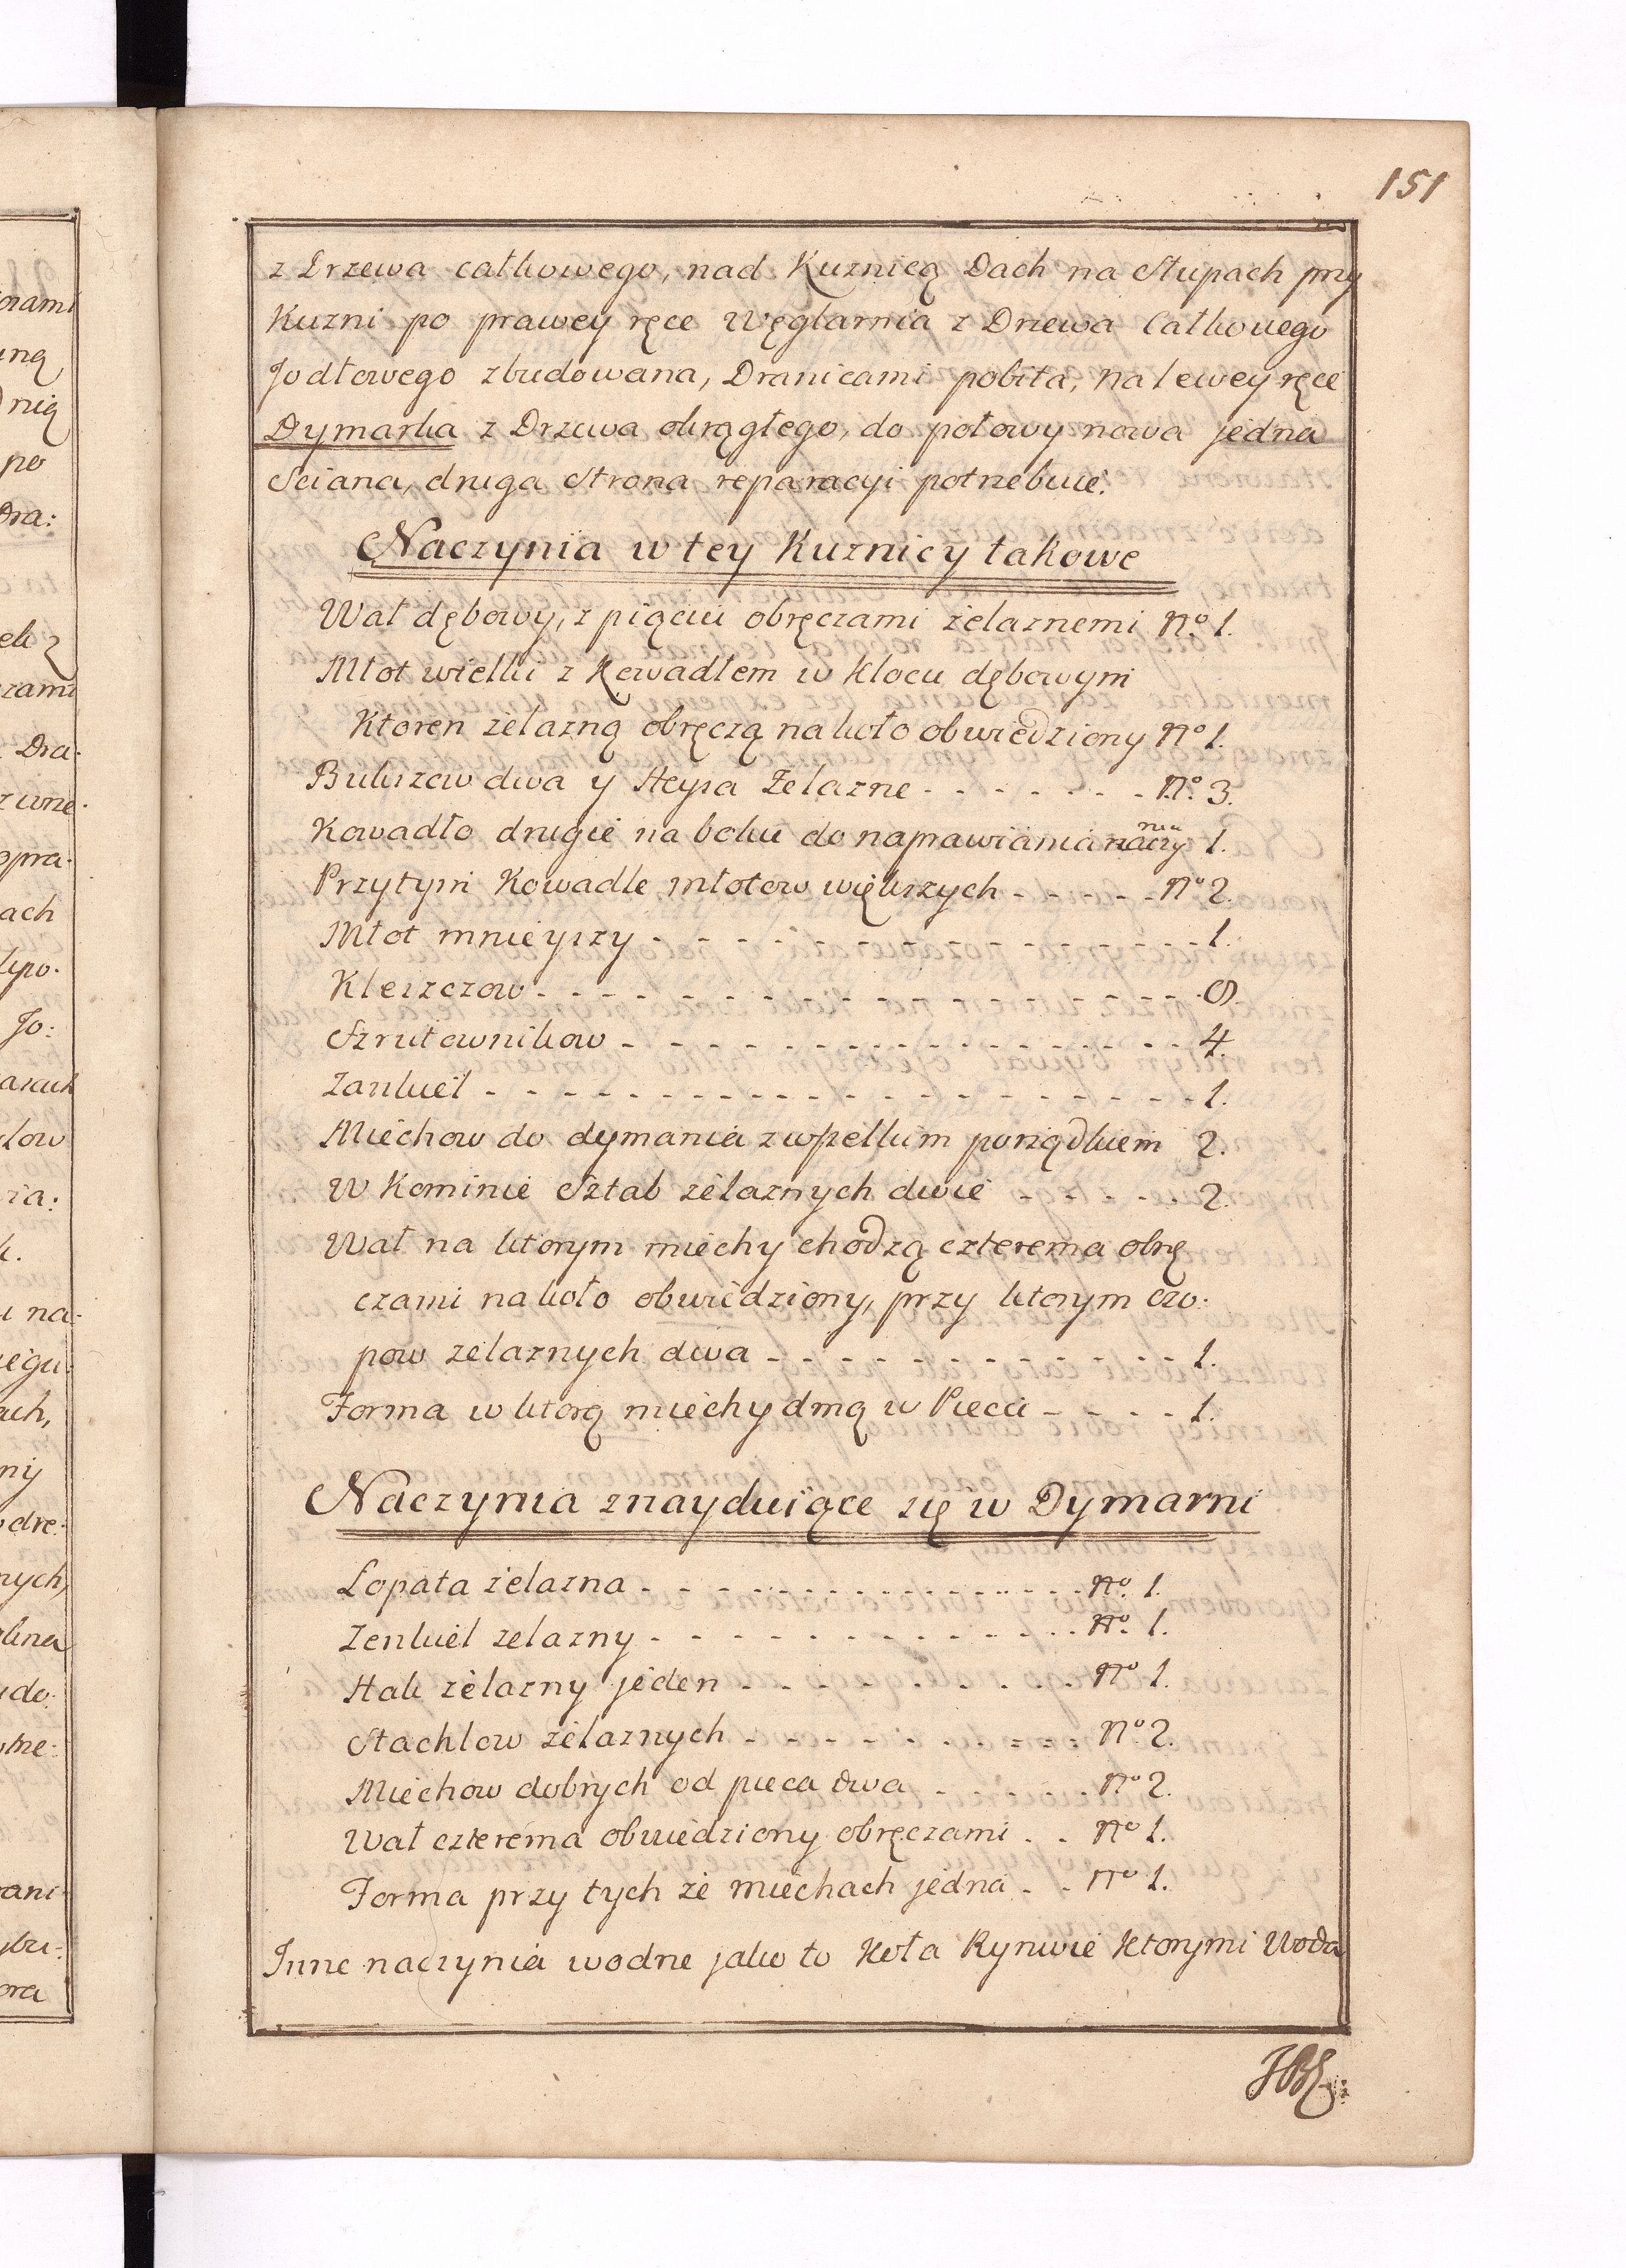 151
z Drzewa całkowego, nad Kuznicą Dach na Słupach przy
Kuzni po prawey ręce Węglarnia z Drzewa Całkowego
Jodłowego zbudowana, Dranicami pobita, na lewey ręce
Dymarka z Drzewa okrągłego, do połowy nowa jedna
Sciana, druga strona reparacyi potrzebuie.
Naczynia w tey Kuznicy takowe
Wał dębowy, z pięciu obręczami żelaznemi No. 1.
Młot wielki z Kowadłem w Klocu dębowym
Ktoren zelazną obręczą nakoło obwiedziony No 1.
Bukszow dwa y Heysa Zelazne - - - - - - - No. 3.
Kowadło drugie na boku do naprawiania naczy
nia 1.
Przytym Kowadle młotow większych - - - - - No 2.
Młot mnieyszy - - - - - - - - - - - - - - - 1.
Kleszczow - - - - - - - - - - - - - - - - - 9.
Szrutownikow - - - - - - - - - - - - - - - 4.
Zankiel - - - - - - - - - - - - - - - - - - 1.
Miechow do dymania z wszelkim porządkiem 2.
W Kominie Sztab żelaznych dwie - - - - - - 2.
Wał na ktorym miechy chodzą czterema obrę
czami nakoło obwiedziony, przy ktorym czo:
pow zelaznych dwa - - - - - - - - - - - - 1.
Forma w ktorą miechy dmą w Piecu - - - - 1.
Naczynia znayduiące się w Dymarni
Łopata żelazna - - - - - - - - - - - - - No. 1.
Zenkiel zelazny - - - - - - - - - - - - - No. 1.
Hak żelazny jeden - - - - - - - - - - No 1.
Stachlow żelaznych - - - - - - - - - - No. 2.
Miechow dobrych od pieca dwa - - - - - - No 2.
Wał czterema obwiedziony obręczami - - No 1.
Forma przy tych że miechach jedna - - No 1.
Inne naczynia wodne jako to Koła Rynwie Ktorymi Woda